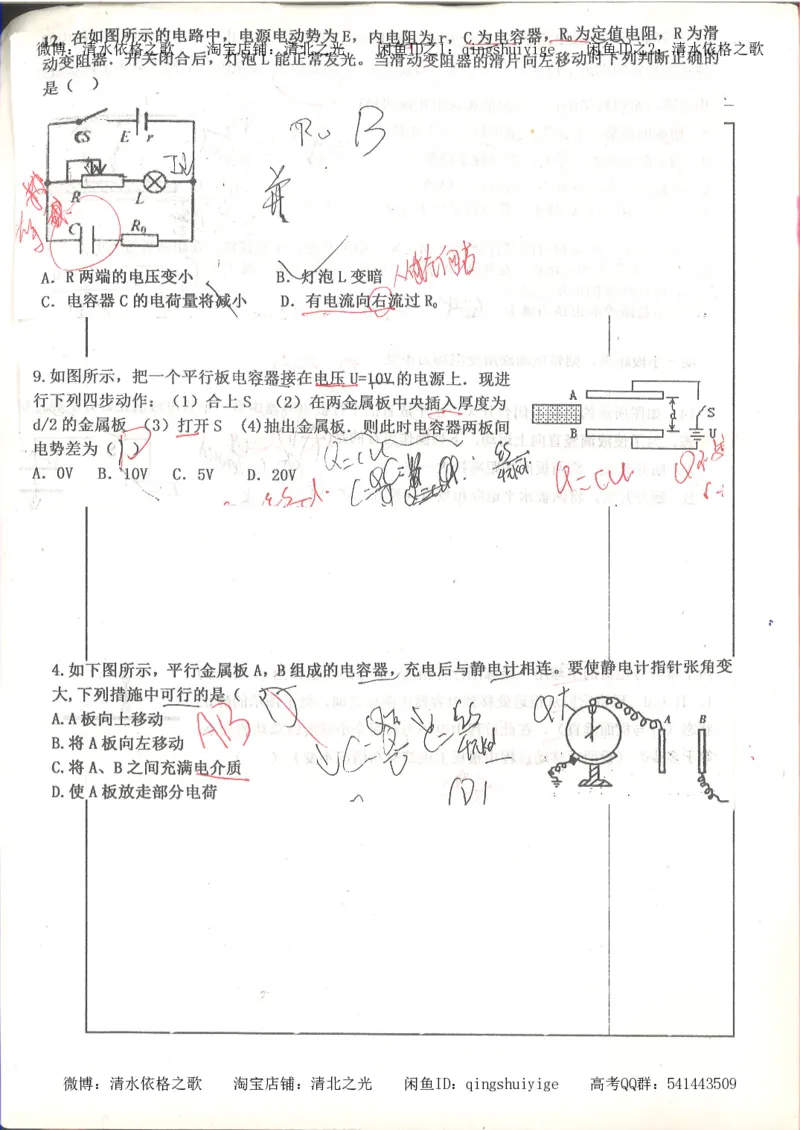 12. 在如图所示的电路中，电源电动势为E，内电阻为r，C为电容器，R₀为定值电阻，R为滑
微博：清水依格之歌 淘宝店铺：清北之光 闲鱼ID之1：qingshuiyige 闲鱼ID之2：清水依格之歌
动变阻器．开关闭合后，灯泡L能正常发光。当滑动变阻器的滑片向左移动时下列判断正确的
是（ ）
R₀ B
S E r
R L
并
C R₀
A．R两端的电压变小 B．灯泡L变暗
C．电容器C的电荷量将减小 D．有电流向右流过R₀
9.如图所示，把一个平行板电容器接在电压U=10V的电源上．现进
行下列四步动作：（1）合上S （2）在两金属板中央插入厚度为
d/2的金属板 （3）打开S （4)抽出金属板．则此时电容器两板间
电势差为（ ）
A S
B U
D
Q=CU
Q=CU
A．0V B．10V C．5V D．20V
4.如下图所示，平行金属板A，B组成的电容器，充电后与静电计相连。要使静电计指针张角变
大,下列措施中可行的是（
A.A板向上移动
AB
B.将A板向左移动
C.将A、B之间充满电介质
D.使A板放走部分电荷
A B
微博：清水依格之歌 淘宝店铺：清北之光 闲鱼ID：qingshuiyige 高考QQ群：541443509